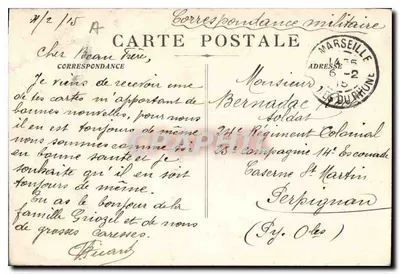 4/2/15
Correspondance militaire
CARTE POSTALE
CORRESPONDANCE
ADRESSE
MARSEILLE
6-2
DU RHONE
Cher Beau Frère,
Je viens de recevoir une
de tes cartes m'apportant de
bonnes nouvelles, pour nous
il en est toujours de même
nous sommes comme toi
en bonne santé et je
souhaite qu'il en soit
toujours de même.
Tu as le bonjour de la
famille et de nous
de grosses caresses.
Monsieur
Bernadac
Soldat
24e Régiment Colonial
28e Compagnie 14e Escouade
Caserne St Martin
Perpignan
(Py. Oles)